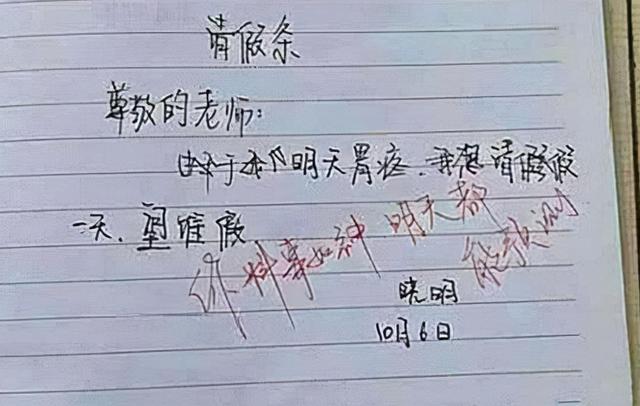 请假条
尊敬的老师:
由于本人明天胃疼.我想请假
一天.望准假
你料事如神 明天都能预测
晓明
10月6日